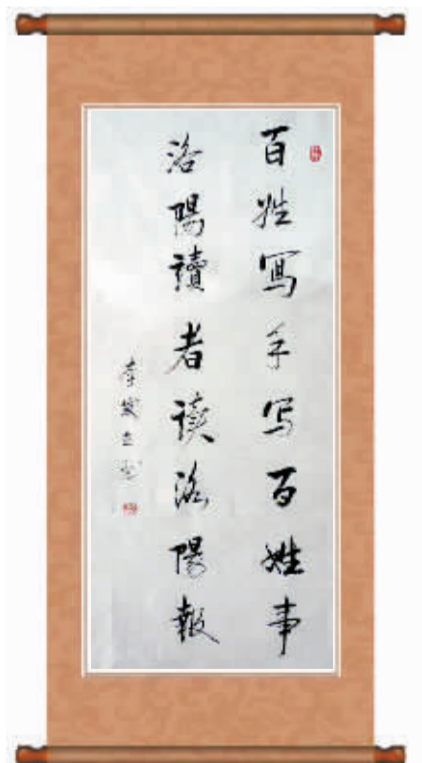 百姓寫手写百姓事
洛陽讀者读洛陽報